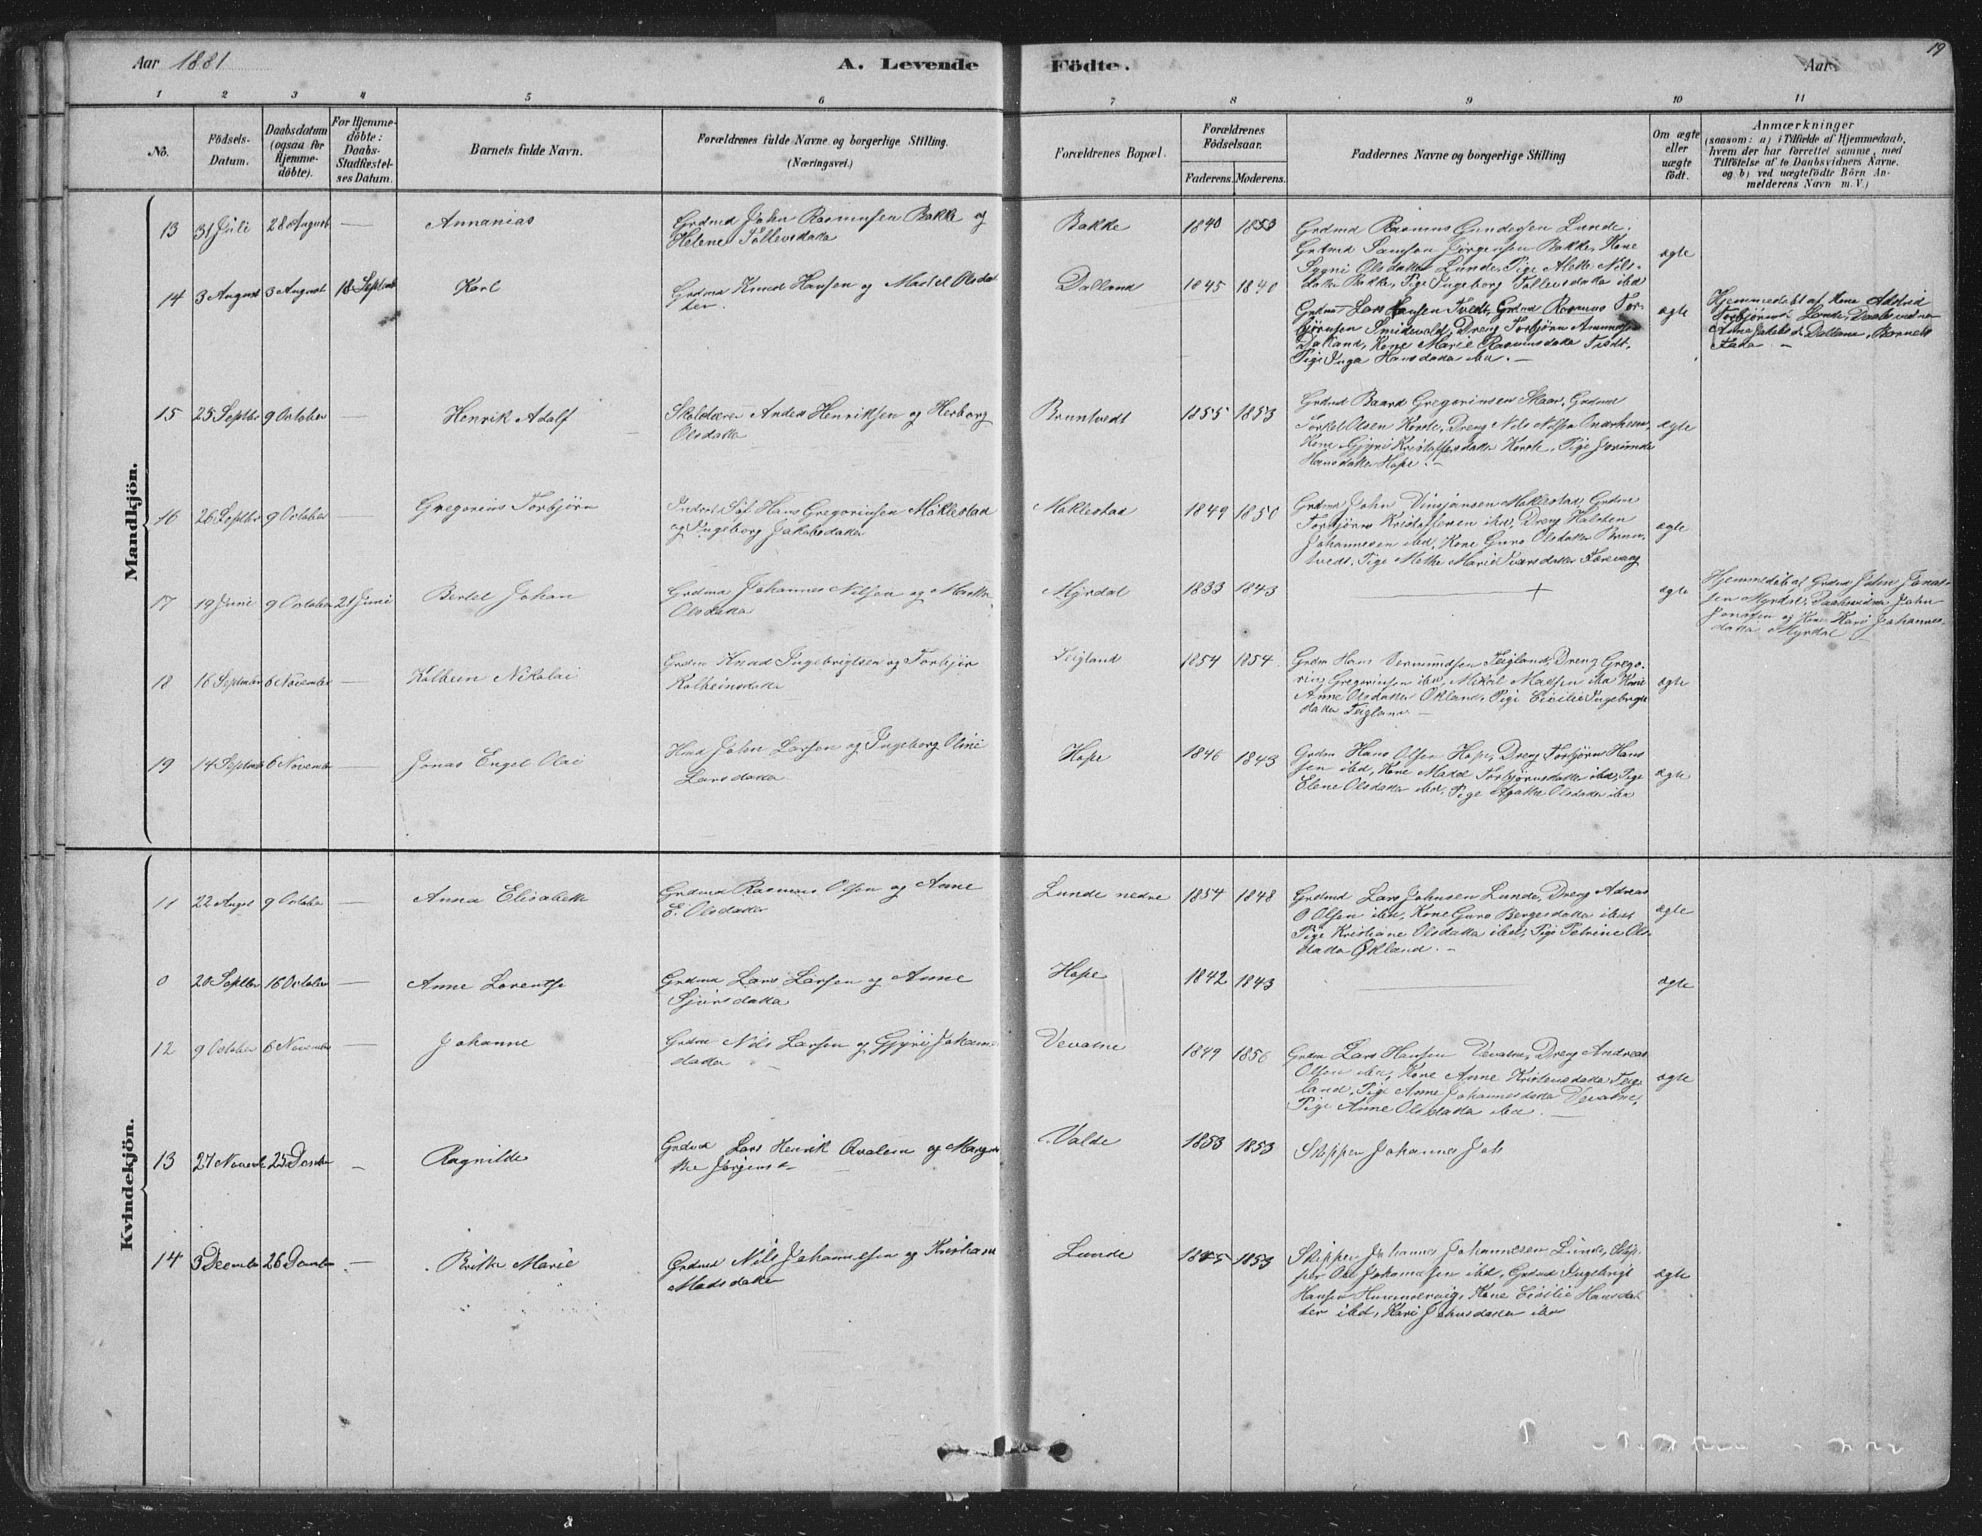 Aar 1881
A. Levende Födte.
Aar
19
1 2 3 4 5 6 7 8 9 10 11
No.
Födsels-Datum.
Daabsdatum (ogsaa for Hjemme-döbte).
For Hjemme-döbte: Daabs-Stadfæstel-ses Datum.
Barnets fulde Navn.
Forældrenes fulde Navne og borgerlige Stilling.
(Næringsvei.)
Forældrenes Bopæl.
Forældrenes Födselsaar.
Faderens. Moderens.
Faddernes Navne og borgerlige Stilling
Om ægte eller uægte födt.
Anmærkninger
(saasom: a) i Tilfælde af Hjemmedaab,
hvem der har forrettet samme, med
Tilföielse af to Daabsvidners Navne.
og b) ved uægtefödte Börn An-
melderens Navn m. V.)
Mandkjön.
13 31 Juli 28 August — Annanias
Grdmd John Rasmussen Bakke og
Helene Tollevsdatter
Bakke 1840 1853
Grdmd Rasmus Gundersen Lunde.
Grdmd Samson Jørgensen Bakke, Kone
Sygni Olsdatter Lunde, Pige Mette Nils-
datter Bakke, Pige Ingeborg Tollevsdatter ibid
ægte
14 3 August 3 August 18 Septemb Karl
Grdmd Knud Hansen og Martel Olsdat
ter.
Dalland 1845 1840
Grdmd Lars Hansen Tvedt, Grdmd Rasmus Tor-
bjørnsen Smidevold, Dreng Torbjørn Amundsen
Dalland, Kone Marie Rasmusdatter Tvedt,
Pige Inga Hansdatter ibid. —
ægte
Hjemmedøbt af Kone Astrid
Torbjørns. Lunde, Daabsvidner
Anne Jakobs d. Dalland, Barnets
Fader. —
15 25 Septbr 9 October — Henrik Adolf
Skolelærer Anders Henriksen og Herborg
Olsdatter
Bruntvedt 1855 1853
Grdmd Baard Gregoriussen Skaar, Grdmd
Torkel Olsen Hovde, Dreng Nils Nilsen Onarheim,
Kone Gjyri Kristoffersdatter Hovde, Pige Jorunde
Hansdatter Hope. —
ægte
16 26 Septbr 9 October Gregorius Torbjørn
Hans Gregoriussen Møklestad
og Ingeborg Jakobsdatter
Møklestad 1849 1850
Grdmd John Vinsjansen Møklestad, Grdmd
Torbjørn Kristoffersen ibid, Dreng Halsten
Johannesen ibid, Kone Guro Olsdatter Brun-
tvedt, Pige Mette Marie Ivarsdatter
ægte
17 19 Juni 9 October 21 Juni Bertel Johan
Grdmd Johannes Nilsen og Marthe
Olsdatter
Myrdal 1833 1843 — +
ægte
Hjemmedøbt af Grdmd John Jonas-
sen Myrdal, Daabsvidner John
Jonassen og Kone Kari Johannes-
datter Myrdal
18 16 September 6 November Kolbein Nikolai
Grdmd Knud Ingebrigtsen og Torbjør
Kolbeinsdatter
Teigland 1854 1854
Grdmd Hans Vermundsen Teigland, Dreng Grego-
rius Gregoriussen ibid, Mikal Madsen ibid Kone
Anne Olsdatter Økland, Pige Cicilie Ingebrigts
datter Teigland —
ægte
19 14 Septemb 6 November — Jonas Engel Olai
Hmd John Larsen og Ingeborg Oline
Larsdatter
Hope 1846 1843
Grdmd Hans Olsen Hope, Dreng Torbjørn Hans
sen ibid, Kone Madel Torbjørnsdatter ibid, Pige
Elene Olsdatter ibid, Pige Agathe Olsdatter ibid
ægte
Kvindekjön.
11 22 Augst 9 October — Anna Elisabeth
Grdmd Rasmus Olsen og Anne
E. Olsdatter
Lunde nedre 1854 1848
Grdmd Lars Johnsen Lunde, Dreng Adreas
O Olsen ibid, Kone Guro Børgesdatter ibid
Pige Kristiane Olsdatter ibid, Pige Petrine Ols-
datter Økland. —
ægte
0 20 Septbr 16 October — Anne Lorentse
Grdmd Lars Larsen og Anne
Sjursdatter
Hope 1842 1843 —
ægte
12 9 October 6 November — Johanne
Grdmd Nils Larsen og Gjyri Johannes
datter
Vevatne 1849 1856
Grdmd Lars Hansen Vevatne, Dreng Andreas
Olsen ibid, Kone Anne Kristensdatter Teig-
land, Pige Anne Johannesdatter Vevatne,
Pige Anne Olsdatter ibid. —
ægte
13 27 Novemb 25 Decmbr — Ragnilde
Grdmd Lars Henrik Qvalem og Margre
the Jørgens dr
Valde 1853 1853
Skipper Johannes Joh
14 3 Decembr 26 Decmbr — Brithe Marie
Grdmd Nils Johannesen og Kristiane
Madsdatter
Lunde 1845 1853
Skipper Johannes Johannesen Lunde, Skip-
per Ole Johannesen ibid, Grdmd Ingebrigt
Hansen Hummervig, Kone Cicilie Hansdat
ter ibid, Kari Johnsdatter ibid
ægte